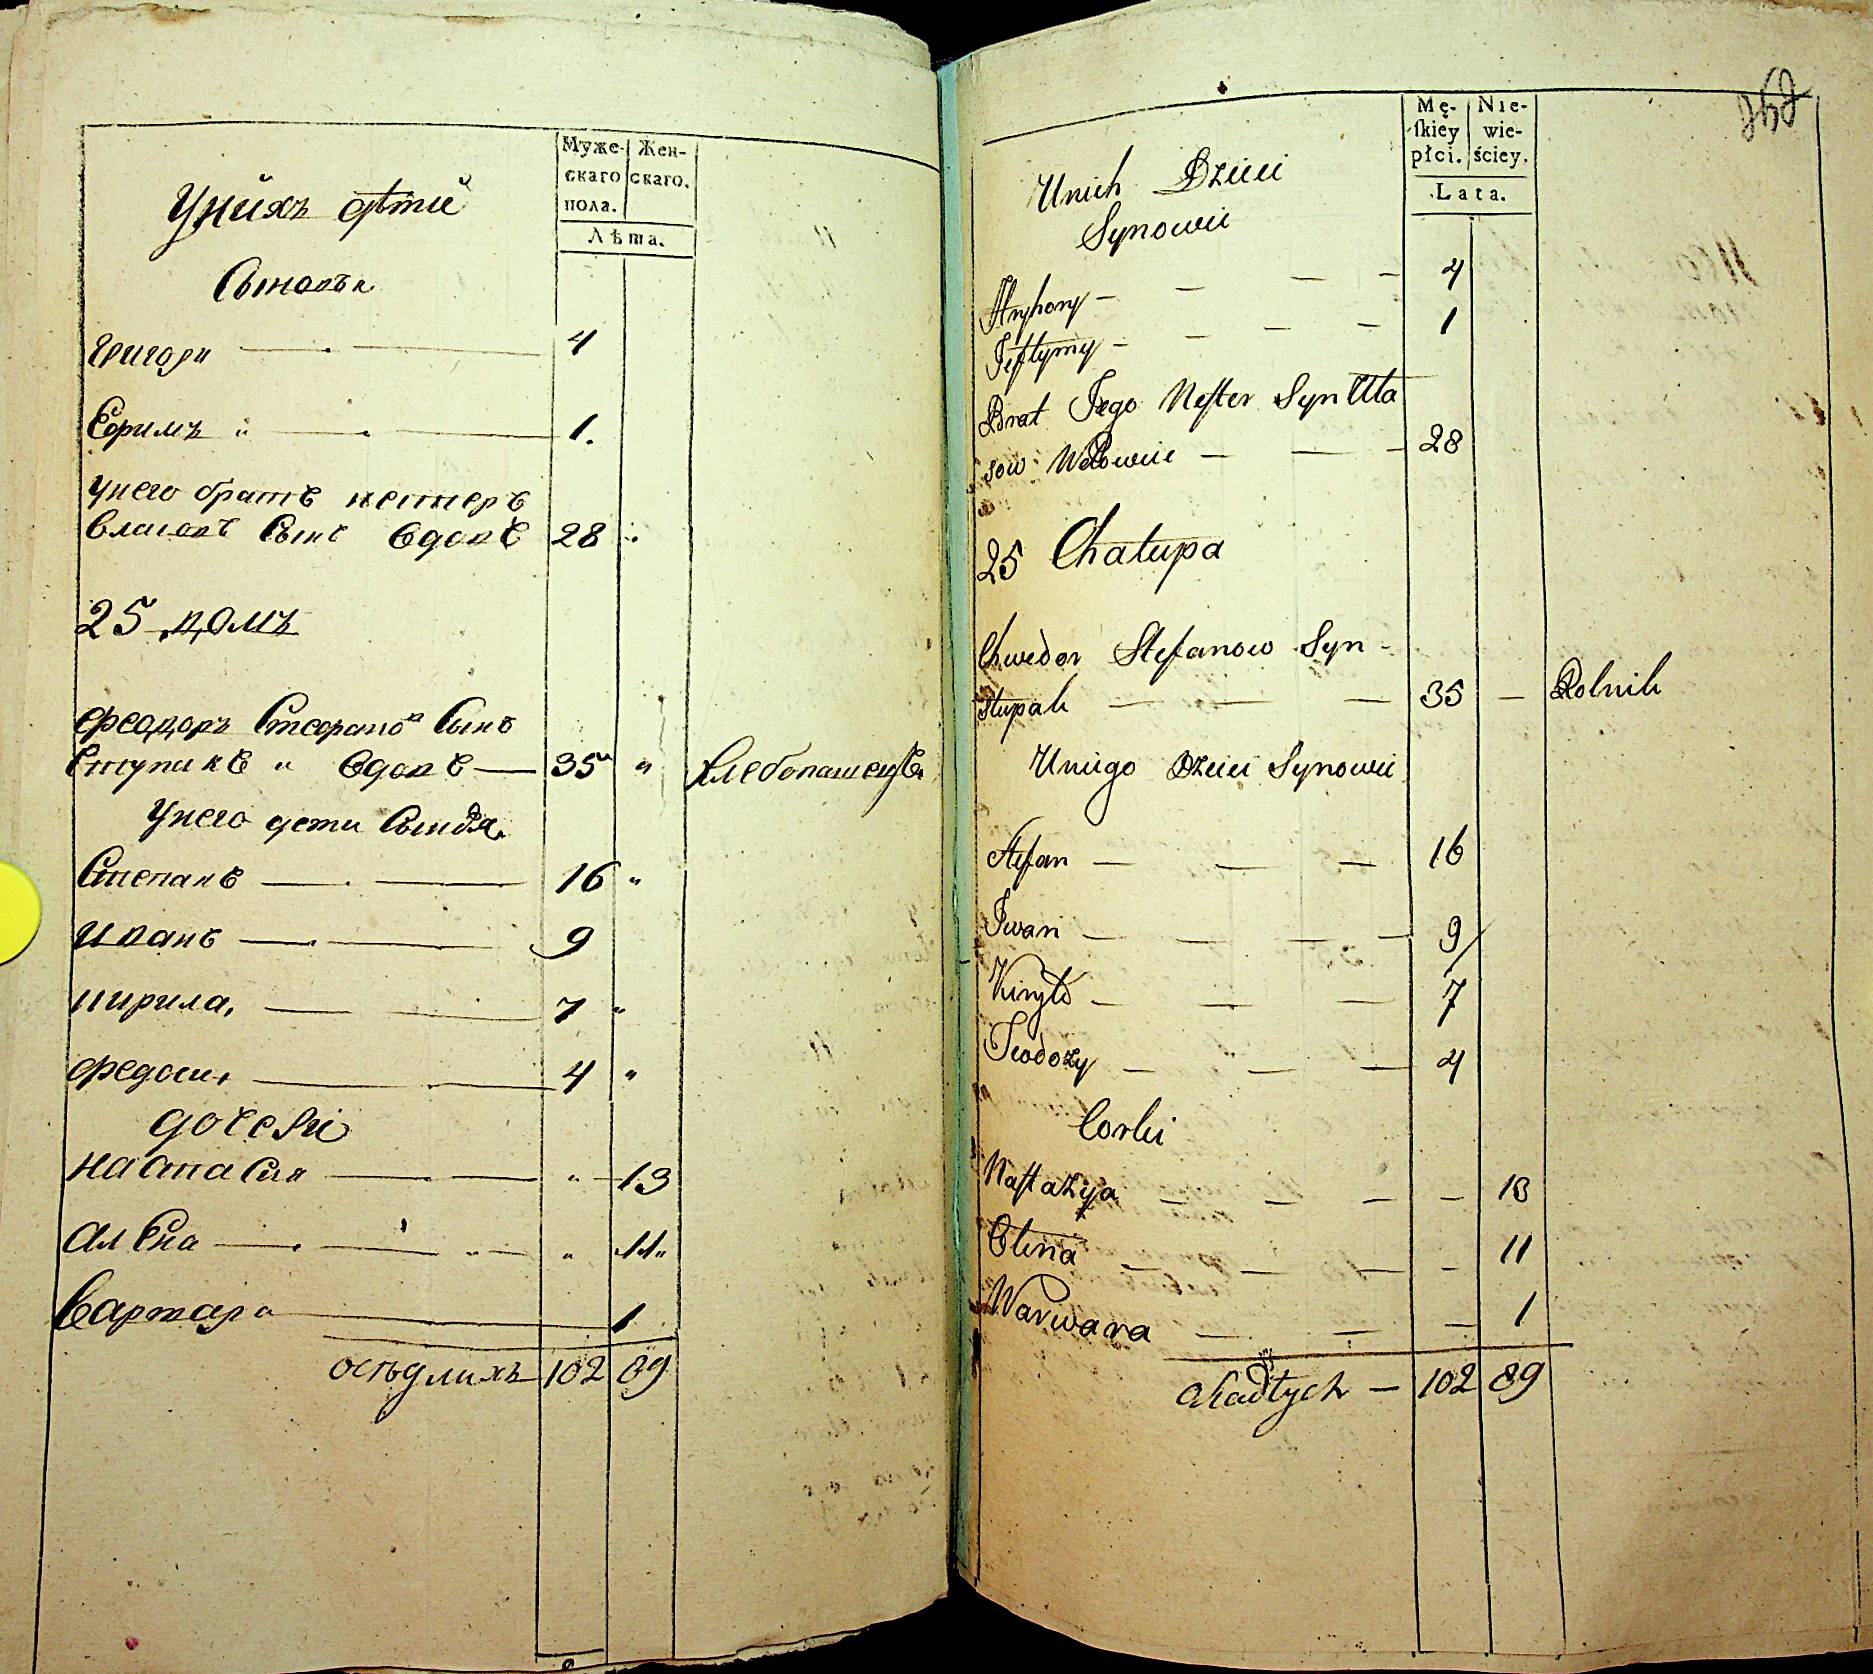 Муже-
скаго
пола.
Жен-
скаго.
Лѣта.
Унихъ дѣти
Сыновья
Григори 4
Ефимъ 1.
Унего братъ нестеръ
Власовъ Сынъ Вдовъ 28
25 домъ
Феодоръ Стефановъ Сынъ
Ступакъ Вдовъ 35 Хлебопашецъ
Унего дети Сыновья
Степанъ 16
Иванъ 9
Кирила 7
Федоси 4
дочери
Настасия 13
Алена 11
Варвара 1
осѣдлихъ 102 89
Mę-
ſkiey
płci.
Nie-
wie-
ściey.
Lata.
Unich Dzieci
Synowie
Hryhory 4
Jeftymy 1
Brat Jego Nester Syn Ula
sow Wdowiec 28
25 Chałupa
Chwedor Stefanow Syn
Stupak 35 Rolnik
Uniego Dzieci Synowie
Stefan 16
Iwan 9
Kiryło 7
Teodozy 4
Corki
Nastazya 13
Olena 11
Warwara 1
Osiadłych 102 89